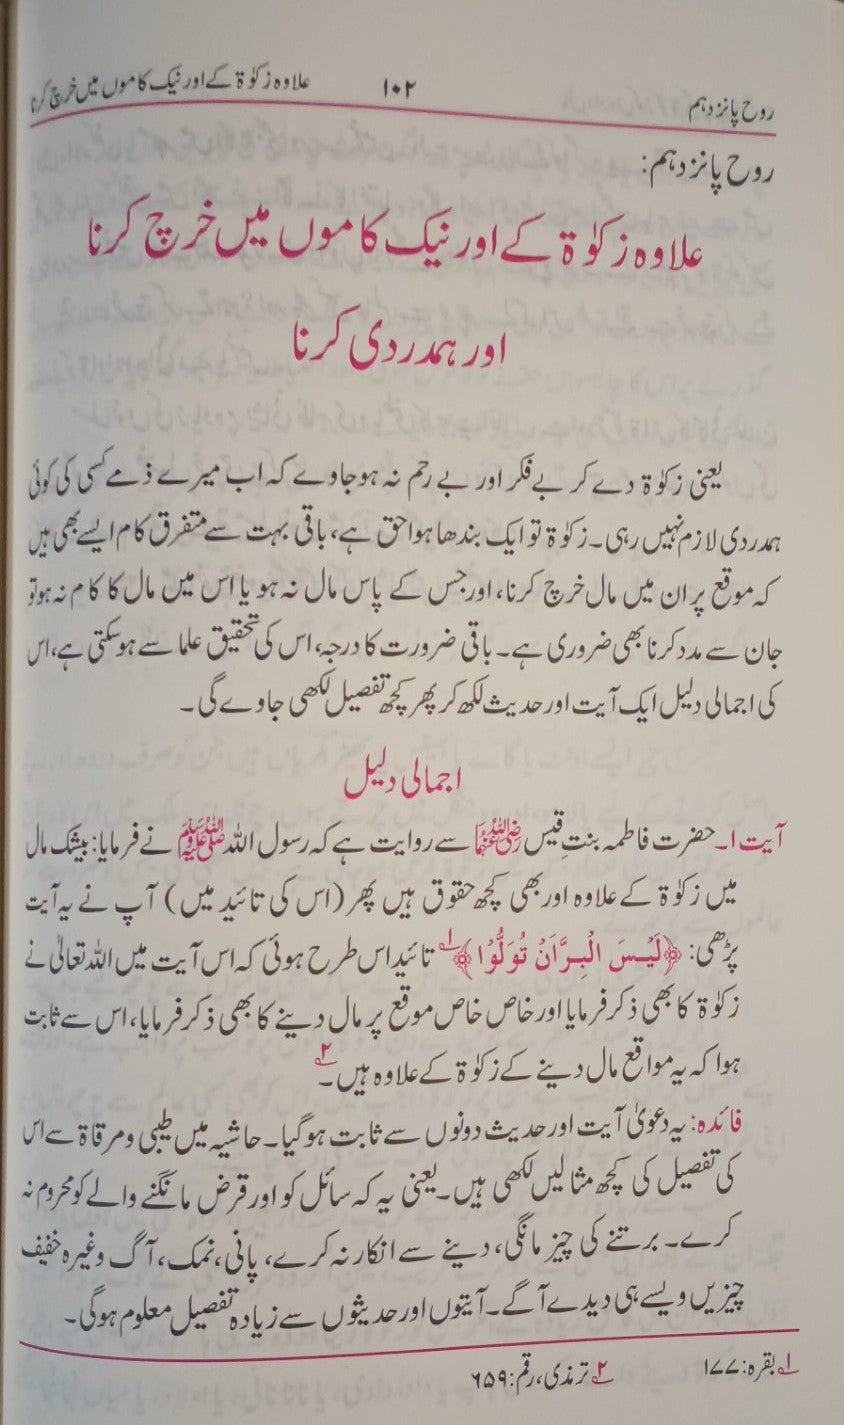 روح پانزدہم ۱۰۲ علاوہ زکوٰۃ کے اور نیک کاموں میں خرچ کرنا
روح پانزدہم:
علاوہ زکوٰۃ کے اور نیک کاموں میں خرچ کرنا
اور ہمدردی کرنا
یعنی زکوٰۃ دے کر بے فکر اور بے رحم نہ ہوجاوے کہ اب میرے ذمے کسی کی کوئی
ہمدردی لازم نہیں رہی۔ زکوٰۃ تو ایک بندھا ہوا حق ہے، باقی بہت سے متفرق کام ایسے بھی ہیں
کہ موقع پر ان میں مال خرچ کرنا، اور جس کے پاس مال نہ ہو یا اس میں مال کا کام نہ ہو تو
جان سے مدد کرنا بھی ضروری ہے۔ باقی ضرورت کا درجہ، اس کی تحقیق علما سے ہوسکتی ہے، اس
کی اجمالی دلیل ایک آیت اور حدیث لکھ کر پھر کچھ تفصیل لکھی جاوے گی۔
اجمالی دلیل
آیت ۱۔ حضرت فاطمہ بنتِ قیس رضی اللہ عنہا سے روایت ہے کہ رسول اللہ ﷺ نے فرمایا: بیشک مال
میں زکوٰۃ کے علاوہ اور بھی کچھ حقوق ہیں پھر (اس کی تائید میں) آپ نے یہ آیت
پڑھی: ﴿لَيْسَ الْبِرَّ اَنْ تُوَلُّوْا﴾ ۱؎ تائید اس طرح ہوئی کہ اس آیت میں اللہ تعالیٰ نے
زکوٰۃ کا بھی ذکر فرمایا اور خاص خاص موقع پر مال دینے کا بھی ذکر فرمایا، اس سے ثابت
ہوا کہ یہ مواقع مال دینے کے زکوٰۃ کے علاوہ ہیں۔ ۲؎
فائدہ: یہ دعویٰ آیت اور حدیث دونوں سے ثابت ہوگیا۔ حاشیہ میں طیبی و مرقاۃ سے اس
کی تفصیل کی کچھ مثالیں لکھی ہیں۔ یعنی یہ کہ سائل کو اور قرض مانگنے والے کو محروم نہ
کرے۔ برتنے کی چیز مانگی، دینے سے انکار نہ کرے، پانی، نمک، آگ وغیرہ خفیف
چیزیں ویسے ہی دیدے آگے۔ آیتوں اور حدیثوں سے زیادہ تفصیل معلوم ہوگی۔
۱؎ بقرہ: ۱۷۷ ۲؎ ترمذی، رقم: ۶۵۹